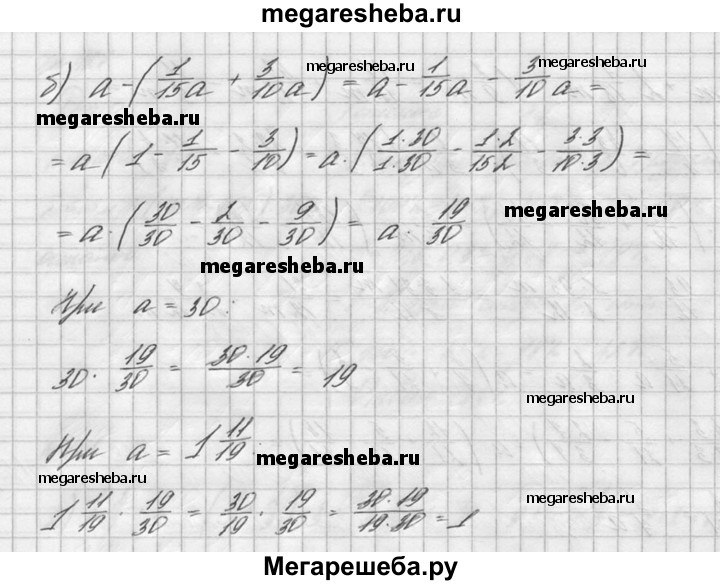 megaresheba.ru
б) a - (1/15 a + 3/10 a) = a - 1/15 a - 3/10 a =
megaresheba.ru megaresheba.ru
megaresheba.ru
= a (1 - 1/15 - 3/10) = a · (1·30/1·30 - 1·2/15 2 - 3·3/10·3) =
= a · (30/30 - 2/30 - 9/30) = a · 19/30
megaresheba.ru
megaresheba.ru
При a = 30:
30 · 19/30 = 30·19/30 = 19
megaresheba.ru
При a = 1 11/19:
megaresheba.ru
megaresheba.ru
1 11/19 · 19/30 = 30/19 · 19/30 = 30·19/19·30 = 1
megaresheba.ru
Мегарешеба.ру